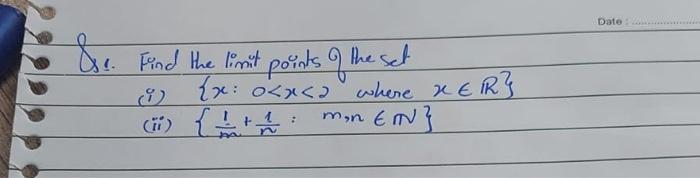 Date :
Qs1. Find the limit points of the set
(i) {x: 0<x<2 where x ∈ ℝ}
(ii) {1/m + 1/n : m,n ∈ ℕ}